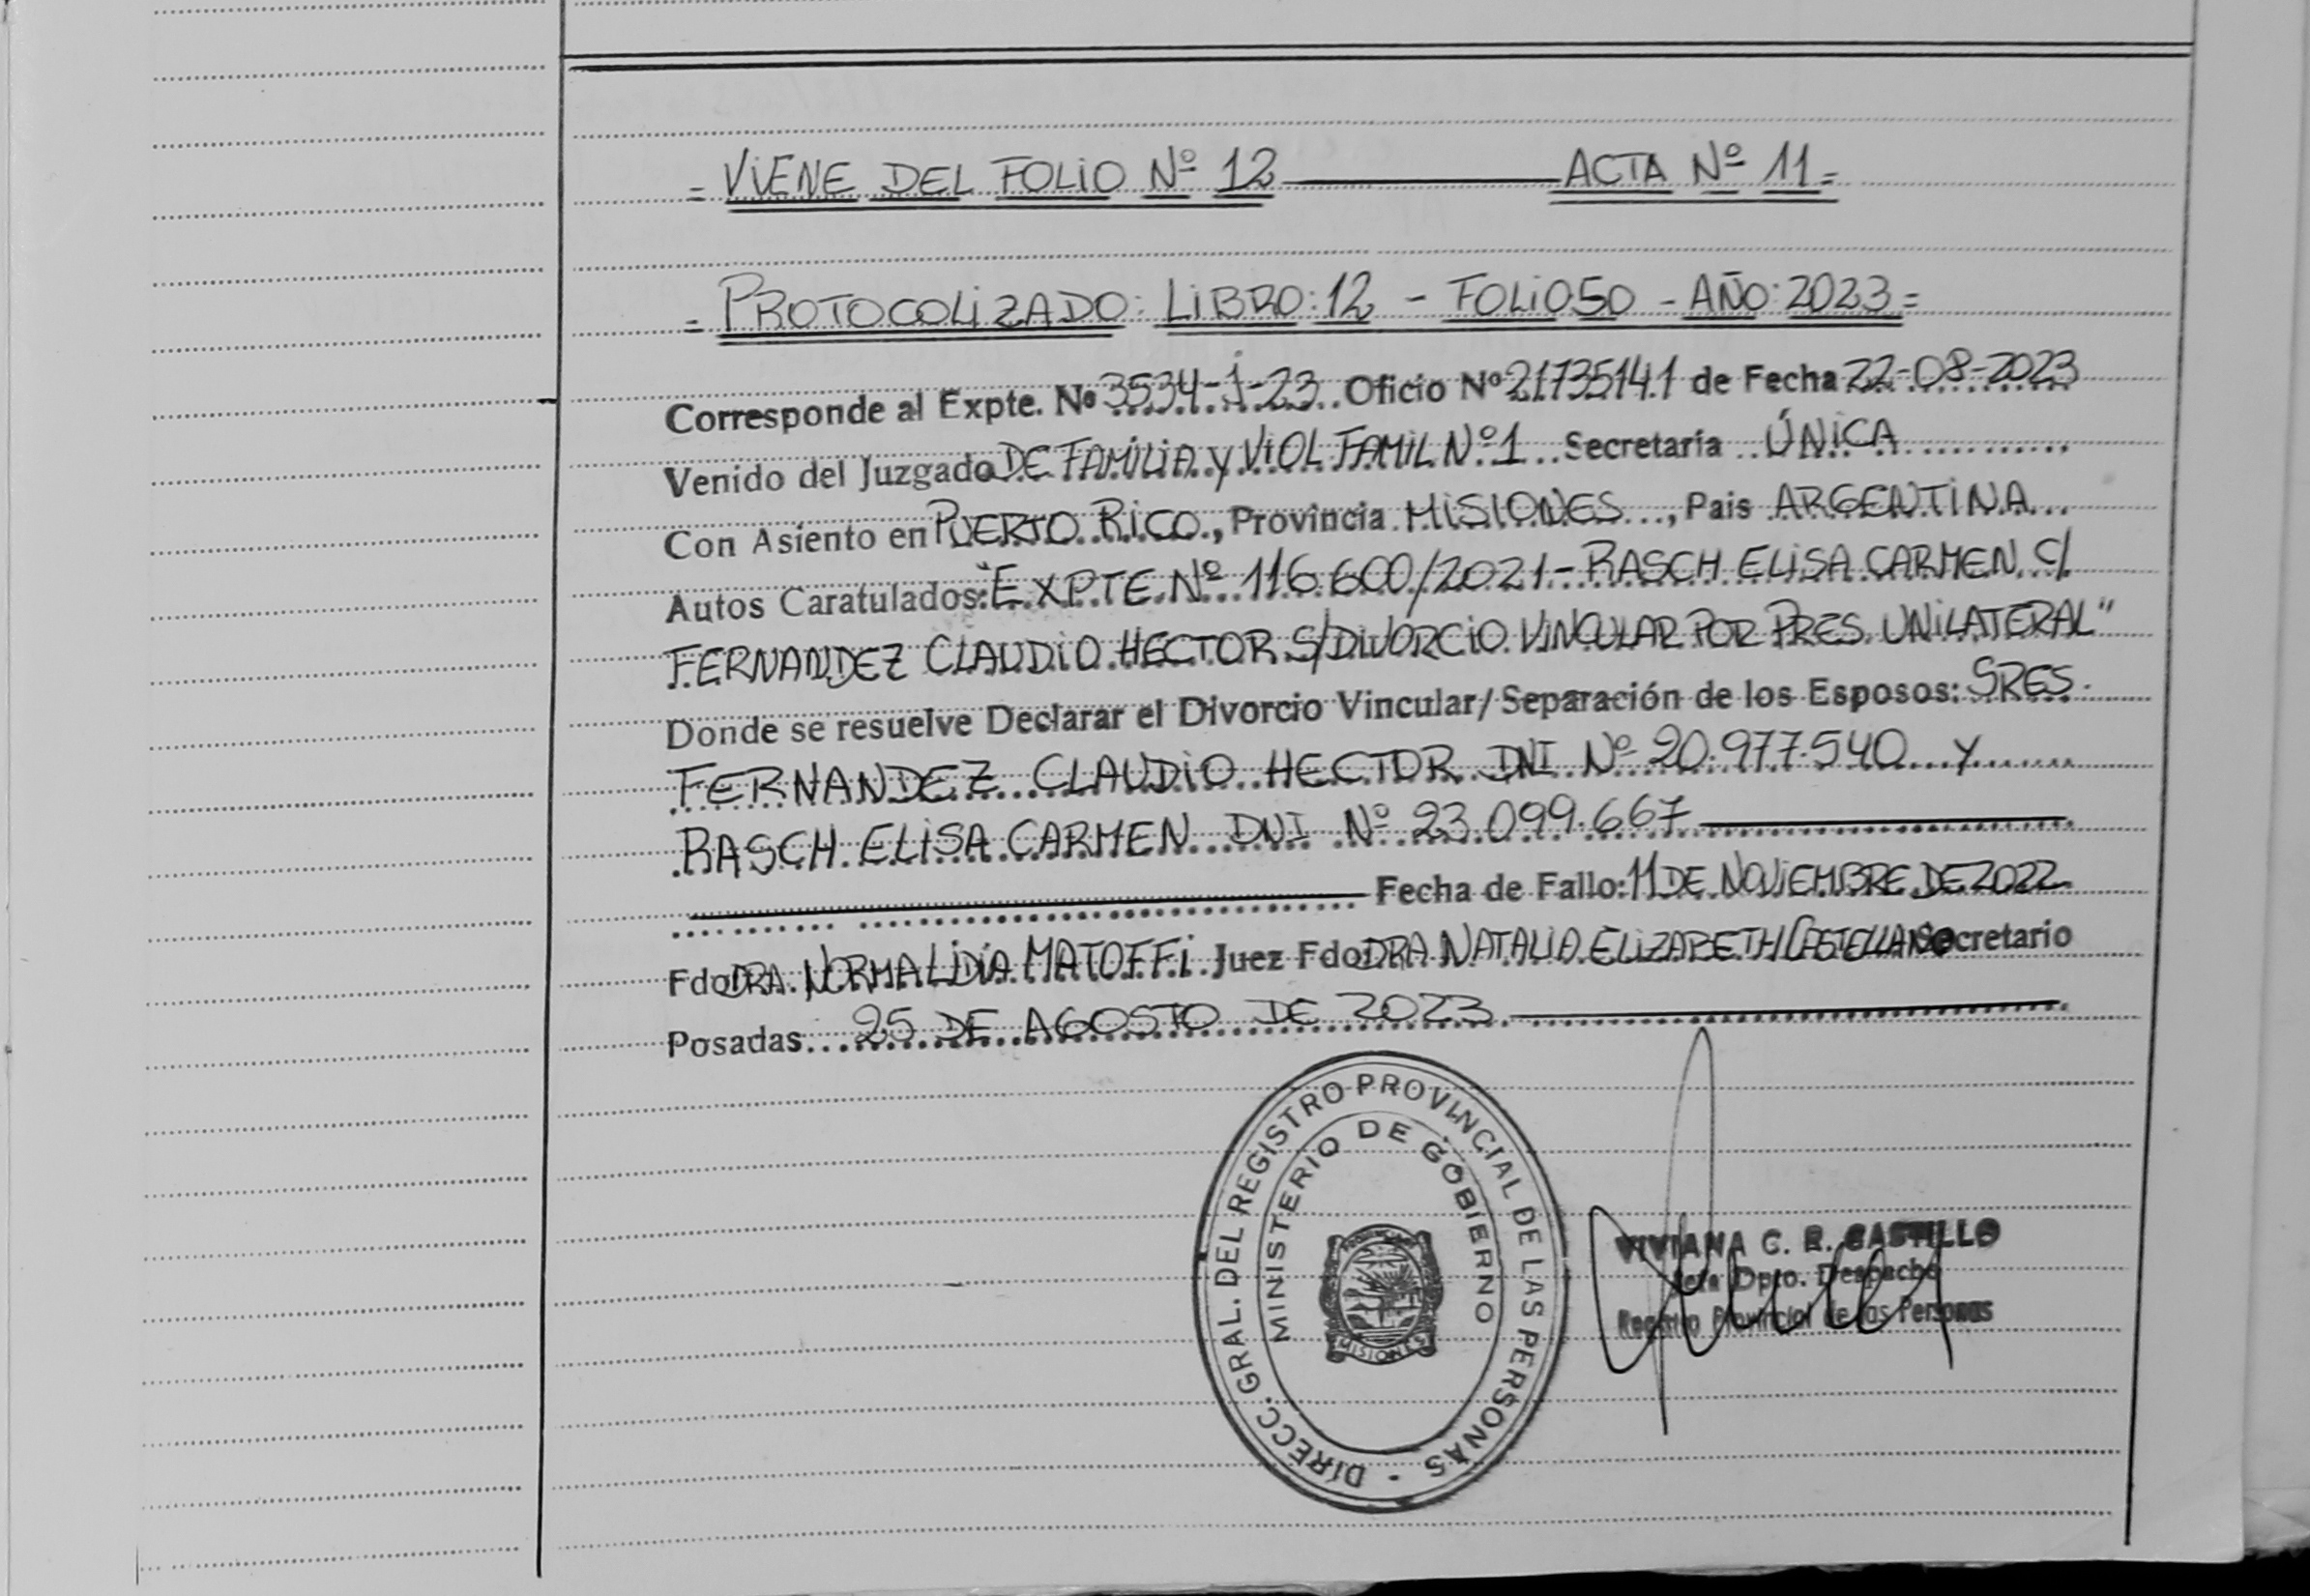 = VIENE DEL FOLIO Nº 12 ——— ACTA Nº 11 =
= PROTOCOLIZADO: LIBRO: 12 - FOLIO 50 - AÑO: 2023 =
Corresponde al Expte. Nº 3534-J-23 Oficio Nº 21735141 de Fecha 22-08-2023
Venido del Juzgado DE FAMILIA y VIOL FAMIL Nº 1 Secretaría ÚNICA
Con Asiento en PUERTO RICO, Provincia MISIONES, Pais ARGENTINA
Autos Caratulados: "EXPTE Nº 116.600/2021 - RASCH ELISA CARMEN C/
FERNANDEZ CLAUDIO HECTOR S/DIVORCIO VINCULAR POR PRES. UNILATERAL"
Donde se resuelve Declarar el Divorcio Vincular/Separación de los Esposos: SRES.
FERNANDEZ CLAUDIO HECTOR DNI Nº 20.977.540 y
RASCH ELISA CARMEN DNI Nº 23.099.667
Fecha de Fallo: 11 DE NOVIEMBRE DE 2022
Fdo: DRA. NORMA LIDIA MATOFFI Juez Fdo: DRA NATALIA ELIZABETH CASTELLANO Secretario
Posadas 25 DE AGOSTO DE 2023
DIRECC. GRAL. DEL REGISTRO PROVINCIAL DE LAS PERSONAS -
MINISTERIO DE GOBIERNO
MISIONES
VIVIANA C. R. CASTILLO
Jefa Dpto. Despacho
Registro Provincial de las Personas